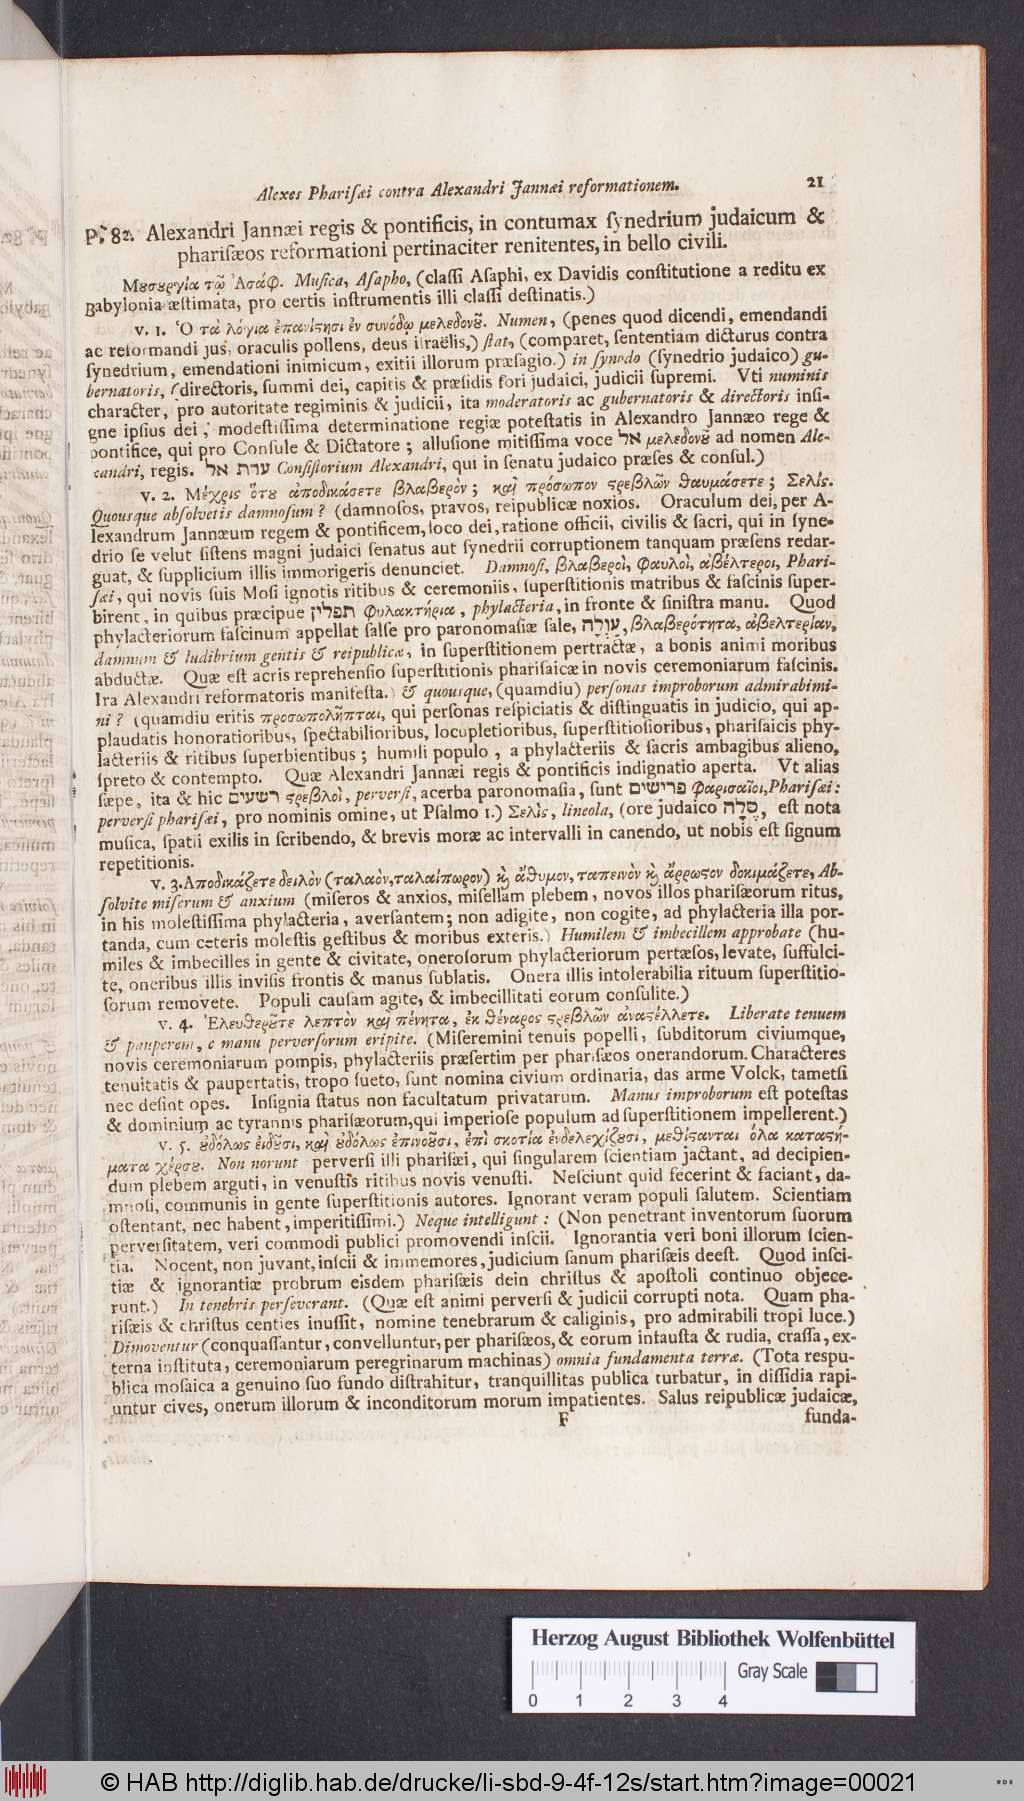 Alexes Phariſæi contra Alexandri Jannæi reformationem. 21
Pſ. 82. Alexandri Jannæi regis & pontificis, in contumax ſynedrium judaicum &
phariſæos reformationi pertinaciter renitentes, in bello civili.
Μουσουργία τῷ Ἀσάφ. Muſica, Aſapho, (claſſi Aſaphi, ex Davidis conſtitutione a reditu ex
Babylonia æſtimata, pro certis inſtrumentis illi claſſi deſtinatis.)
v. 1. Ὁ τὰ λόγια ἐπανίστησι ἐν συνόδῳ μελεδονοῦ. Numen, (penes quod dicendi, emendandi
ac reformandi jus, oraculis pollens, deus iſraëlis,) ſtat, (comparet, ſententiam dicturus contra
ſynedrium, emendationi inimicum, exitii illorum præſagio.) in ſynodo (ſynedrio judaico) gu-
bernatoris, (directoris, ſummi dei, capitis & præſidis fori judaici, judicii ſupremi. Vti numinis
character, pro autoritate regiminis & judicii, ita moderatoris ac gubernatoris & directoris inſi-
gne ipſius dei; modeſtiſſima determinatione regiæ poteſtatis in Alexandro Jannæo rege &
pontifice, qui pro Conſule & Dictatore; alluſione mitiſſima voce אל μελεδονοῦ ad nomen Ale-
xandri, regis. עדת אל Conſiſtorium Alexandri, qui in ſenatu judaico præſes & conſul.)
v. 2. Μέχρις ὅτου ἀποδικάσετε βλαβερὸν; καὶ πρόσωπον στρεβλῶν θαυμάσετε; Σελίς.
Quousque abſolvetis damnoſum? (damnoſos, pravos, reipublicæ noxios. Oraculum dei, per A-
lexandrum Jannæum regem & pontificem, loco dei, ratione officii, civilis & ſacri, qui in ſyne-
drio ſe velut ſiſtens magni judaici ſenatus aut ſynedrii corruptionem tanquam præſens redar-
guat, & ſupplicium illis immorigeris denunciet. Damnoſi, βλαβεροὶ, φαυλοὶ, ἀβέλτεροι, Phari-
ſæi, qui novis ſuis Moſi ignotis ritibus & ceremoniis, ſuperſtitionis matribus & faſcinis ſuper-
birent, in quibus præcipue תפלין φυλακτήρια, phylacteria, in fronte & ſiniſtra manu. Quod
phylacteriorum faſcinum appellat ſalſe pro paronomaſiæ ſale, עַוְלָה, βλαβερότητα, ἀβελτερίαν,
damnum & ludibrium gentis & reipublicæ, in ſuperſtitionem pertractæ, a bonis animi moribus
abductæ. Quæ eſt acris reprehenſio ſuperſtitionis phariſaicæ in novis ceremoniarum faſcinis.
Ira Alexandri reformatoris manifeſta.) & quousque, (quamdiu) perſonas improborum admirabimi-
ni? (quamdiu eritis προσωπολῆπται, qui perſonas reſpiciatis & diſtinguatis in judicio, qui ap-
plaudatis honoratioribus, ſpectabilioribus, locupletioribus, ſuperſtitioſioribus, phariſaicis phy-
lacteriis & ritibus ſuperbientibus; humili populo, a phylacteriis & ſacris ambagibus alieno,
ſpreto & contempto. Quæ Alexandri Jannæi regis & pontificis indignatio aperta. Vt alias
ſæpe, ita & hic רשעים στρεβλοὶ, perverſi, acerba paronomaſia, ſunt פרישים φαρισαῖοι, Phariſæi:
perverſi phariſæi, pro nominis omine, ut Pſalmo 1.) Σελὶς, lineola, (ore judaico סֶלָה, eſt nota
muſica, ſpatii exilis in ſcribendo, & brevis moræ ac intervalli in canendo, ut nobis eſt ſignum
repetitionis.
v. 3. Αποδικάζετε δειλὸν (ταλαὸν, ταλαίπωρον) κὶ ἄθυμον, ταπεινὸν κὶ ἄρρωστον δοκιμάζετε, Ab-
ſolvite miſerum & anxium (miſeros & anxios, miſellam plebem, novos illos phariſæorum ritus,
in his moleſtiſſima phylacteria, averſantem; non adigite, non cogite, ad phylacteria illa por-
tanda, cum ceteris moleſtis geſtibus & moribus exteris.) Humilem & imbecillem approbate (hu-
miles & imbecilles in gente & civitate, oneroſorum phylacteriorum pertæſos, levate, ſuffulci-
te, oneribus illis inviſis frontis & manus ſublatis. Onera illis intolerabilia rituum ſuperſtitio-
ſorum removete. Populi cauſam agite, & imbecillitati eorum conſulite.)
v. 4. Ἐλευθεροῦτε λεπτὸν καὶ πένητα, ἐκ θέναρος στρεβλῶν ἀναστέλλετε. Liberate tenuem
& pauperem, e manu perverſorum eripite. (Miſeremini tenuis popelli, ſubditorum civiumque,
novis ceremoniarum pompis, phylacteriis præſertim per phariſæos onerandorum. Characteres
tenuitatis & paupertatis, tropo ſueto, ſunt nomina civium ordinaria, das arme Volck, tametſi
nec deſint opes. Inſignia ſtatus non facultatum privatarum. Manus improborum eſt poteſtas
& dominium ac tyrannis phariſæorum, qui imperioſe populum ad ſuperſtitionem impellerent.)
v. 5. οὐδόλως εἰδοῦσι, καὶ οὐδόλως ἐπινοῦσι, ἐπὶ σκοτία ἐνδελεχίζουσι, μεθίστανται ὅλα καταστή-
ματα χέρσου. Non norunt perverſi illi phariſæi, qui ſingularem ſcientiam jactant, ad decipien-
dum plebem arguti, in venuſtis ritibus novis venuſti. Neſciunt quid fecerint & faciant, da-
mnoſi, communis in gente ſuperſtitionis autores. Ignorant veram populi ſalutem. Scientiam
oſtentant, nec habent, imperitiſſimi.) Neque intelligunt: (Non penetrant inventorum ſuorum
perverſitatem, veri commodi publici promovendi inſcii. Ignorantia veri boni illorum ſcien-
tia. Nocent, non juvant, inſcii & immemores, judicium ſanum phariſæis deeſt. Quod inſci-
tiæ & ignorantiæ probrum eisdem phariſæis dein chriſtus & apoſtoli continuo objece-
runt.) In tenebris perſeverant. (Quæ eſt animi perverſi & judicii corrupti nota. Quam pha-
riſæis & chriſtus centies inuſſit, nomine tenebrarum & caliginis, pro admirabili tropi luce.)
Dimoventur (conquaſſantur, convelluntur, per phariſæos, & eorum infauſta & rudia, craſſa, ex-
terna inſtituta, ceremoniarum peregrinarum machinas) omnia fundamenta terræ. (Tota respu-
blica moſaica a genuino ſuo fundo diſtrahitur, tranquillitas publica turbatur, in diſſidia rapi-
untur cives, onerum illorum & inconditorum morum impatientes. Salus reipublicæ judaicæ,
F funda-
Herzog August Bibliothek Wolfenbüttel
Gray Scale
0 1 2 3 4
© HAB http://diglib.hab.de/drucke/li-sbd-9-4f-12s/start.htm?image=00021